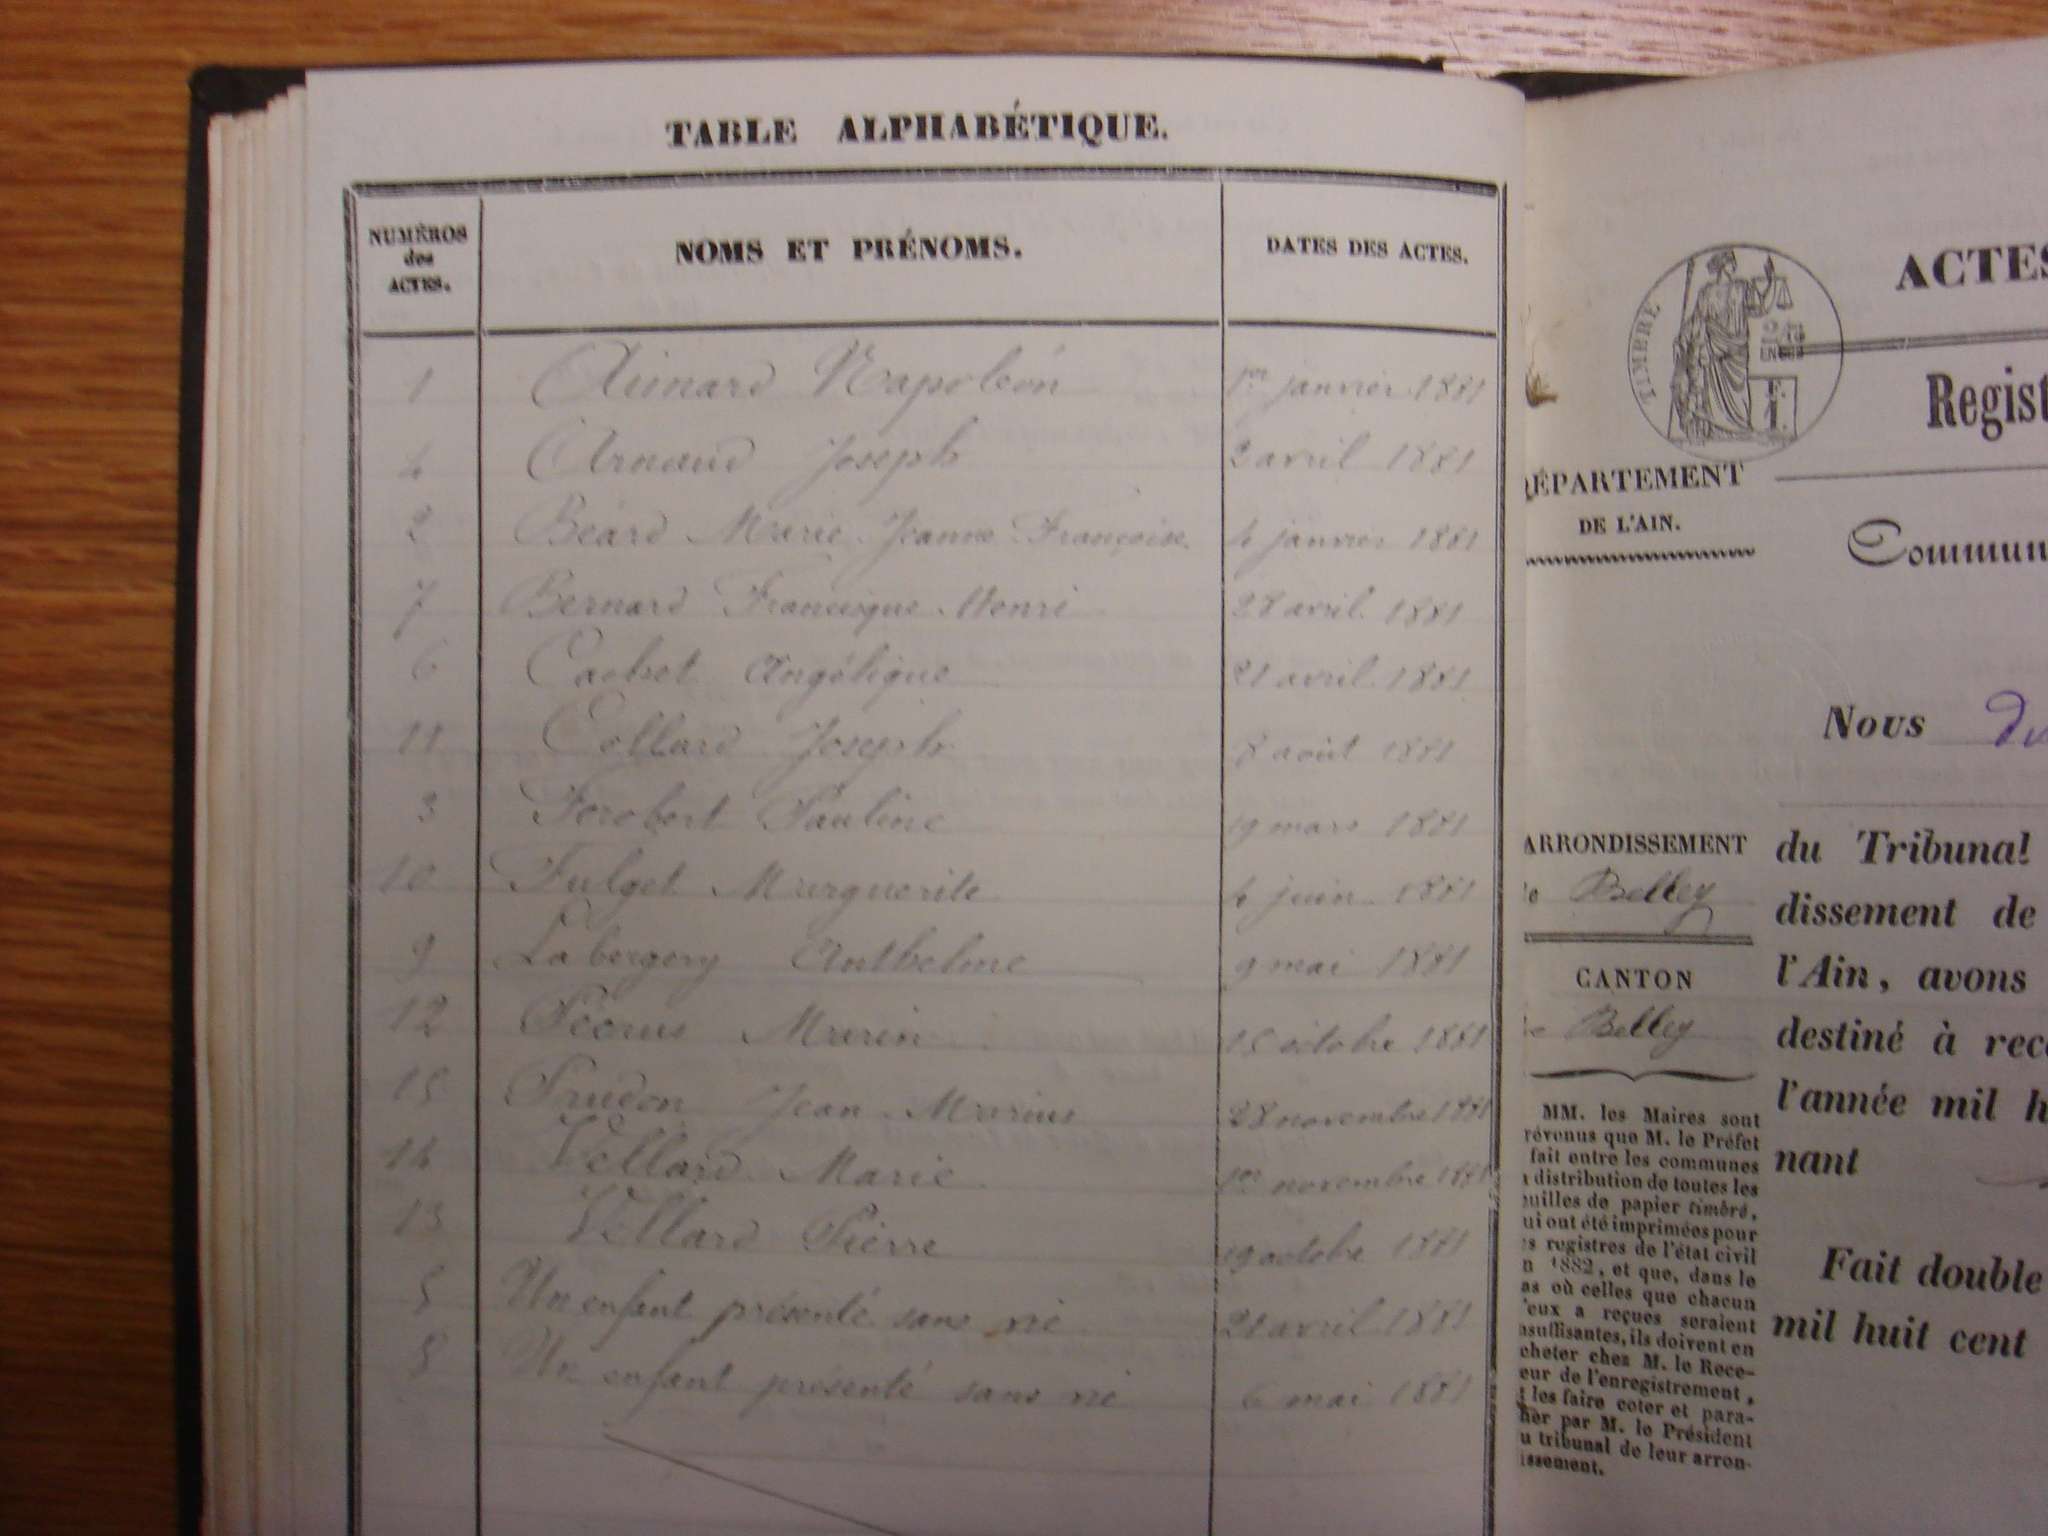 TABLE ALPHABÉTIQUE.
NUMÉROS
des
ACTES.
NOMS ET PRÉNOMS.
DATES DES ACTES.
1 Aimard Napoléon 1er janvier 1881
4 Arnaud Joseph 2 avril 1881
2 Béard Marie Jeanne Françoise 4 janvier 1881
7 Bernard Francisque Henri 28 avril 1881
6 Carbet Angélique 21 avril 1881
11 Collard Joseph 8 août 1881
3 Ferobert Pauline 19 mars 1881
10 Fulget Marguerite 4 juin 1881
9 Labergery Anthelme 9 mai 1881
12 Marin octobre 1881
15 Prudon Jean Marius 28 novembre 1881
14 Vellard Marie 1er novembre 1881
13 Vellard Pierre 19 octobre 1881
5 Un enfant présenté sans vie 21 avril 1881
8 Un enfant presenté sans vie 6 mai 1881
TIMBRE
ACTES
Regist
DÉPARTEMENT
DE L'AIN.
Commun
Nous du
ARRONDISSEMENT
Belley
CANTON
Belley
MM. les Maires sont
révenus que M. le Préfet
fait entre les communes
distribution de toutes les
euilles de papier timbré,
ui ont été imprimées pour
s registres de l'état civil
n 1882, et que, dans le
as où celles que chacun
'eux a reçues seraient
nsuffisantes, ils doivent en
cheter chez M. le Rece-
eur de l'enregistrement,
les faire coter et para-
her par M. le Président
u tribunal de leur arron-
issement.
du Tribunal
dissement de
l'Ain, avons
destiné à rec
l'année mil h
nant
Fait double
mil huit cent